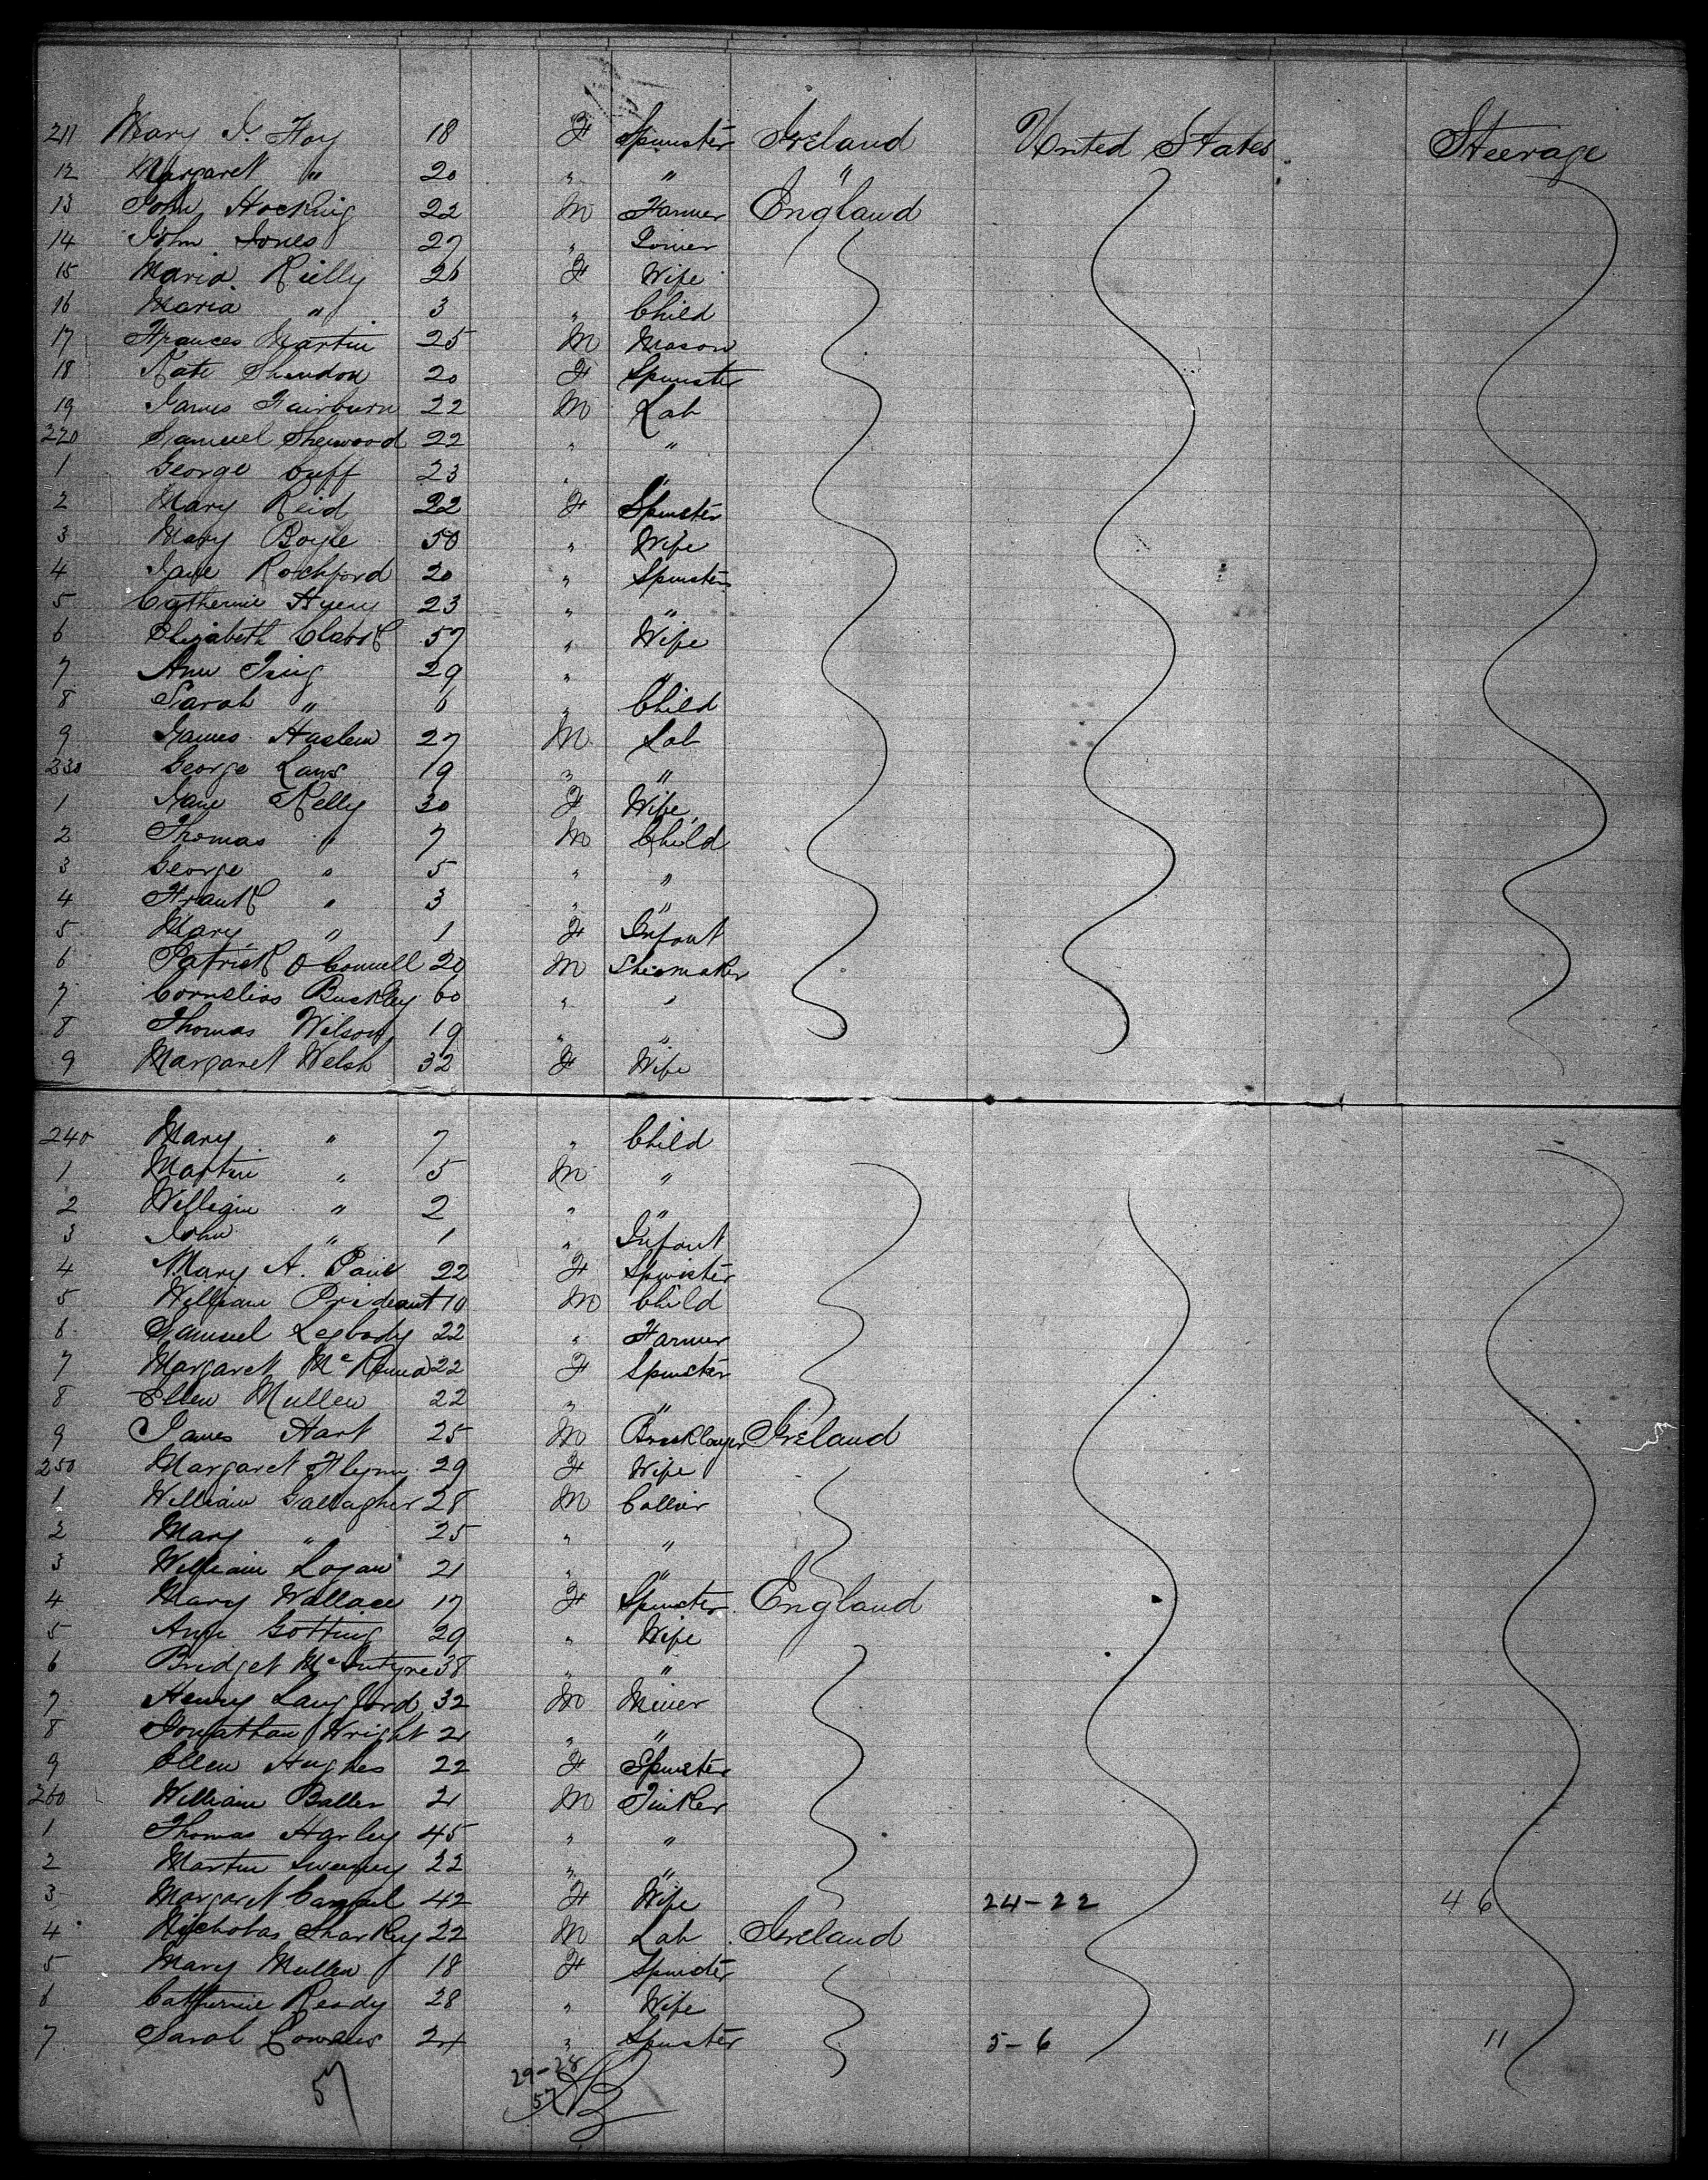 211 Mary J. Foy 18 F Spinster Ireland United States Steerage
12 Margaret " 20 " " "
13 John Hocking 22 M Farmer England
14 John Jones 27 " Joiner
15 Maria Reilly 26 F Wife
16 Maria " 3 " Child
17 Frances Martin 25 M Mason
18 Kate 20 F Spinster
19 James Fairburn 22 M Lab
220 Samuel Sherwood 22 " "
1 George Cuff 23 " "
2 Mary Reid 22 F Spinster
3 Mary Boyle 50 " Wife
4 Jane Rochford 20 " Spinster
5 Catherine 23 " "
6 Elizabeth 57 " Wife
7 Ann 29 " "
8 Sarah " 6 " Child
9 James Haslem 27 M Lab
230 George Laws 19 " "
1 Jane Kelly 30 F Wife
2 Thomas " 7 M Child
3 George " 5 " "
4 Frank " 3 " "
5 Mary " 1 F Infant
6 Patrick O Connell 20 M Shoemaker
7 Cornelios Buckley 60 " "
8 Thomas Wilson 19 " "
9 Margaret Welsh 32 F Wife
240 Mary " 7 " Child
1 Martin " 5 M "
2 William " 2 " "
3 John " 1 " Infant
4 Mary A. 22 F Spinster
5 William 10 M Child
6 Samuel 22 " Farmer
7 Margaret 22 F Spinster
8 Ellen Mullen 22 " "
9 James Hart 25 M Bricklayer Ireland
250 Margaret Flynn 29 F Wife
1 William Gallagher 28 M Collier
2 Mary " 25 " "
3 William Logan 21 " "
4 Mary Wallace 17 F Spinster England
5 Ann Gotting 29 " Wife
6 Bridget McIntyre 38 " "
7 Henry Langford 32 M Miner
8 Jonathan Wright 21 " "
9 Ellen Hughes 22 F Spinster
260 William 21 M Tinker
1 Thomas Harley 45 " "
2 Martin Sweeney 22 " "
3 Margaret 42 F Wife 24-22 46
4 Nicholas Sharkey 22 M Lab Ireland
5 Mary Mullen 18 F Spinster
6 Catherine Ready 28 " Wife
7 Sarah 24 " Spinster 5-6 11
57 29-28
57